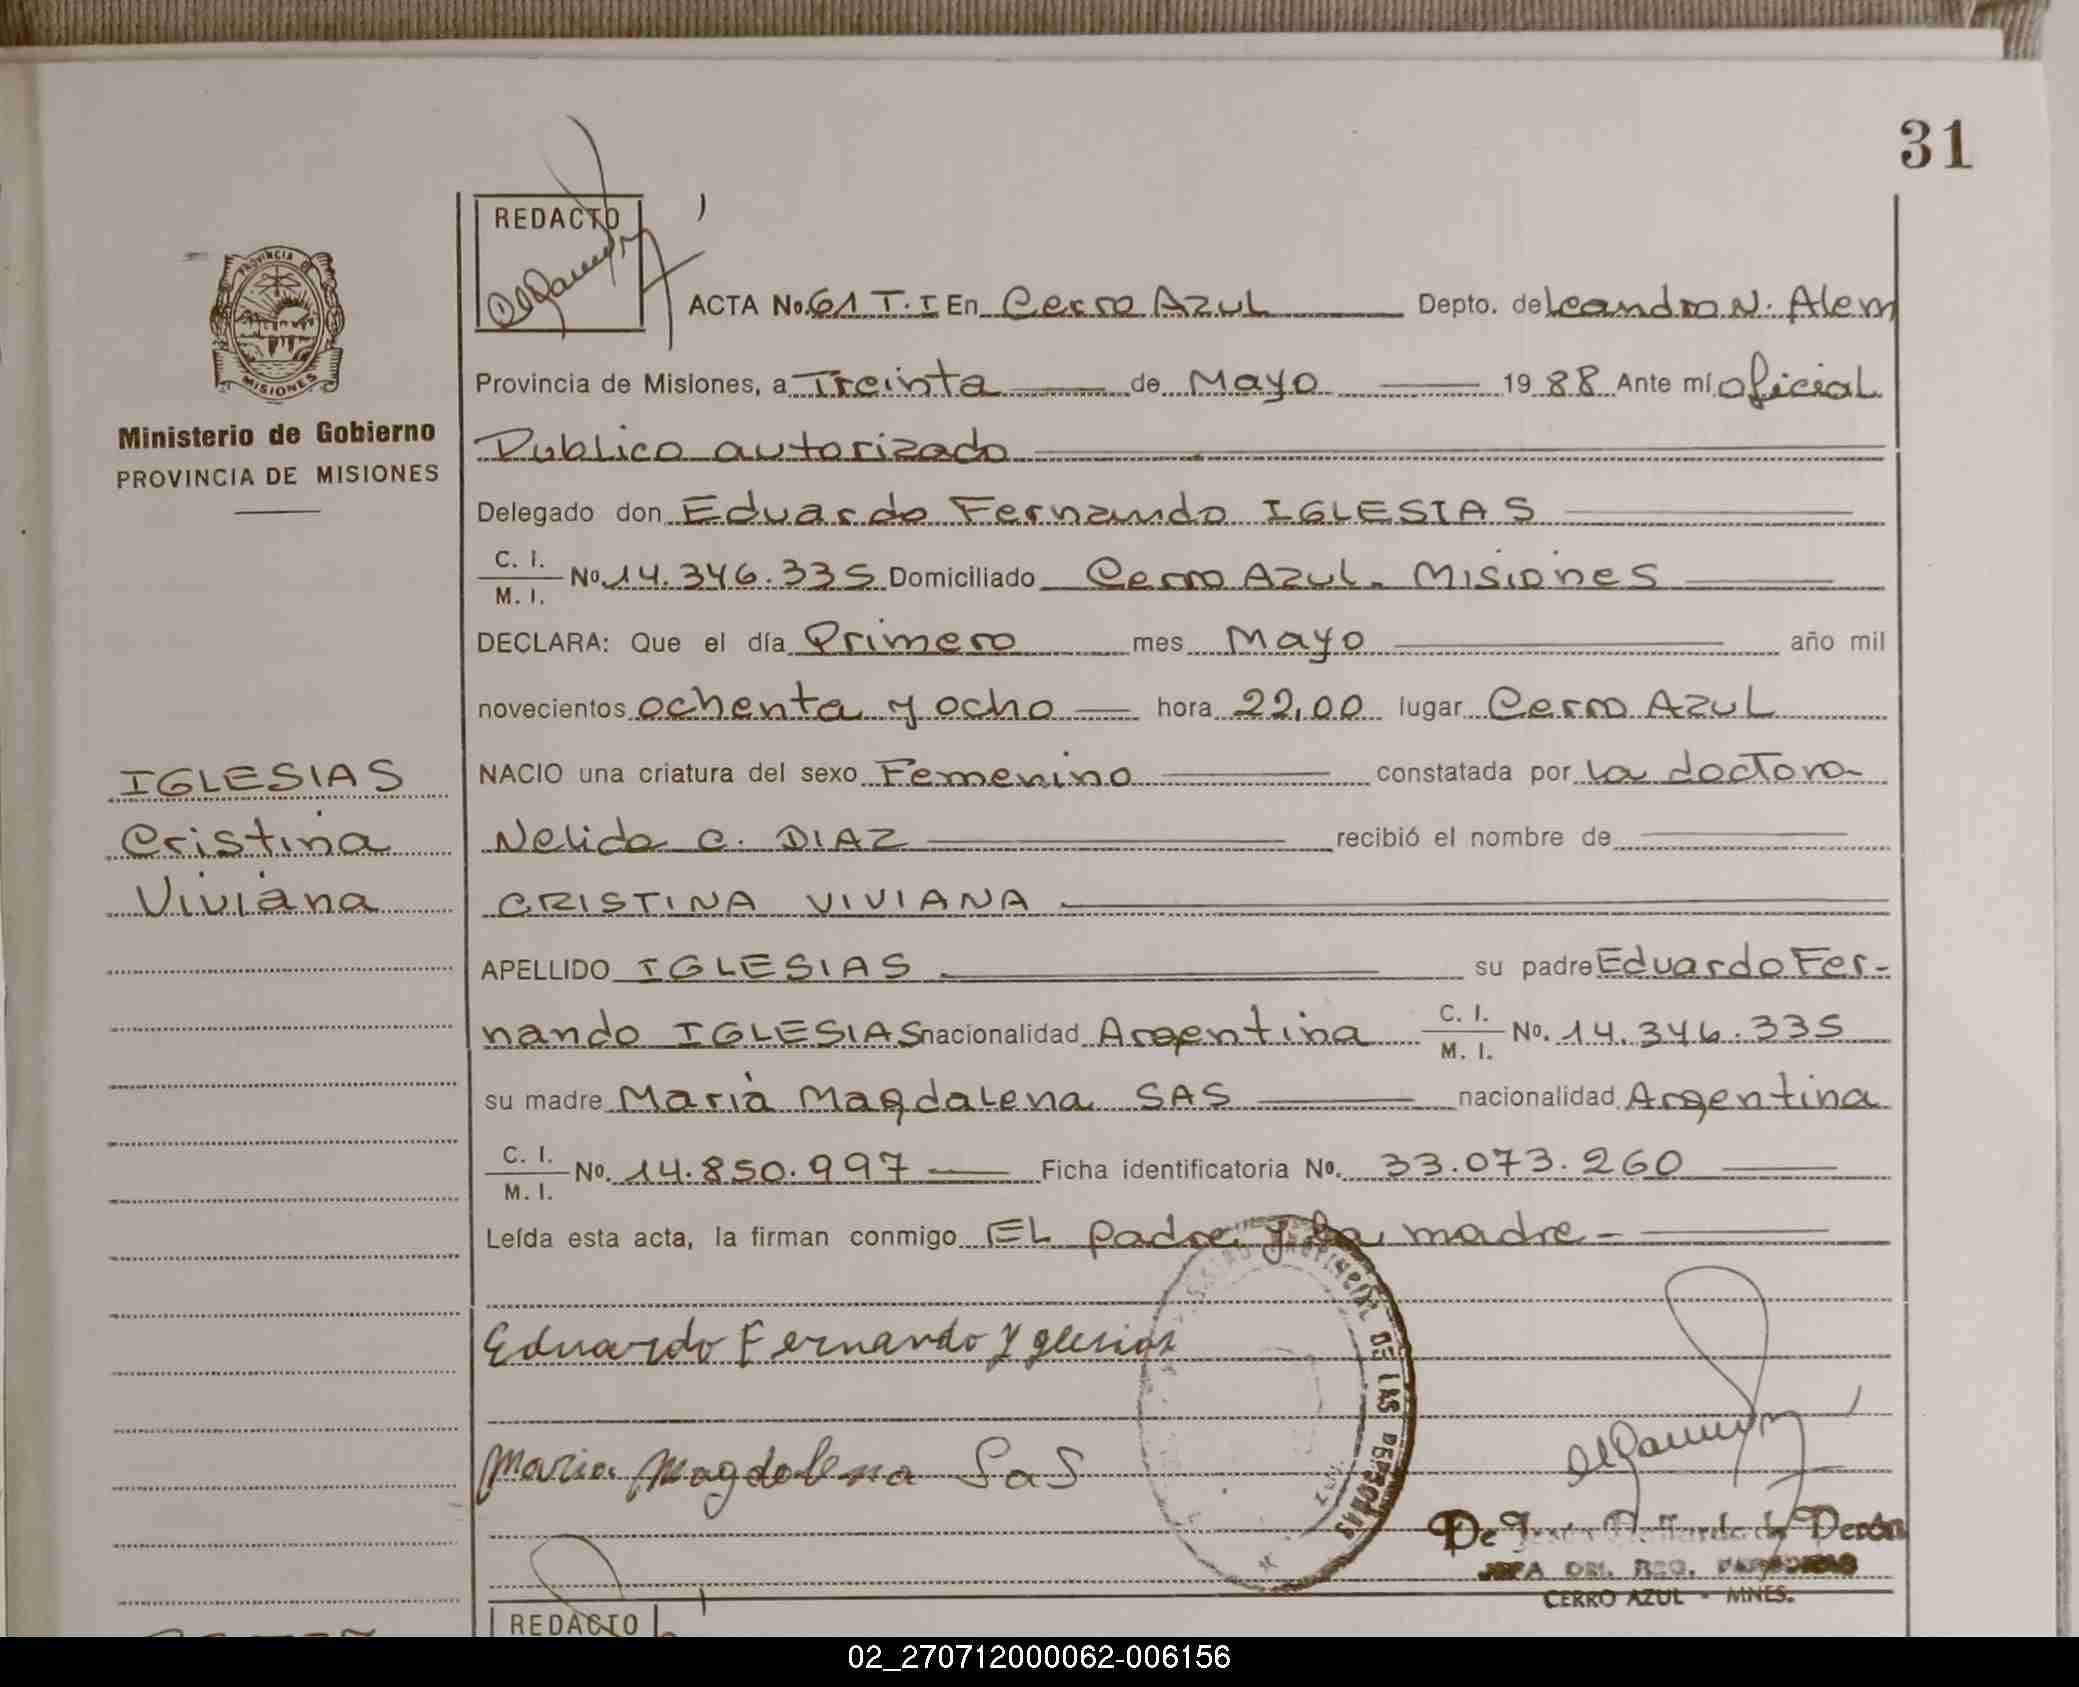 31
REDACTO
PROVINCIA DE
MISIONES
Ministerio de Gobierno
PROVINCIA DE MISIONES
ACTA No. 61 T.I En Cerro Azul Depto. de Leandro N. Alem
Provincia de Misiones, a Treinta de Mayo 1988 Ante mí Oficial
Publico autorizado
Delegado don Eduardo Fernando IGLESIAS
C. I. / M. I. No. 14.346.335 Domiciliado Cerro Azul - Misiones
DECLARA: Que el día Primero mes Mayo año mil
novecientos ochenta y ocho hora 22,00 lugar Cerro Azul
NACIO una criatura del sexo Femenino constatada por la doctora
Nelida C. DIAZ recibió el nombre de
CRISTINA VIVIANA
IGLESIAS
Cristina
Viviana
APELLIDO IGLESIAS su padre Eduardo Fer-
nando IGLESIAS nacionalidad Argentina C. I. / M. I. No. 14.346.335
su madre Maria Magdalena SAS nacionalidad Argentina
C. I. / M. I. No. 14.850.997 Ficha identificatoria No. 33.073.260
Leída esta acta, la firman conmigo EL padre y la madre-
Eduardo Fernando Yglesias
Maria Magdalena Sas
DE LAS PERSONAS
De Jesús de Perón
JEFA DEL REG.
CERRO AZUL - MNES.
REDACTO
02_270712000062-006156